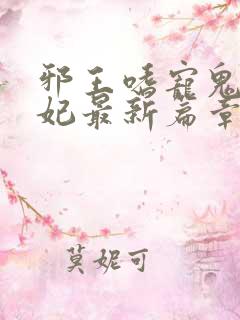 邪王嗜寵鬼
妃最新篇章
莫妮可